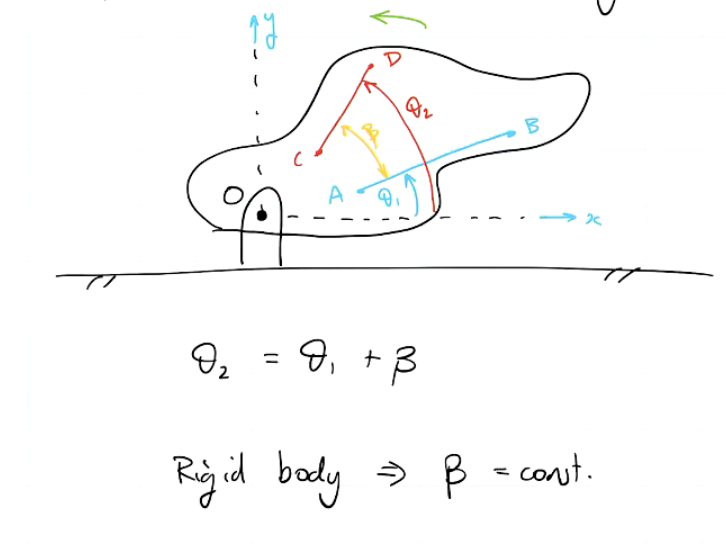 y
D
θ₂
β
B
C
A
θ₁
O
x
θ₂ = θ₁ + β
Rigid body ⇒ β = const.